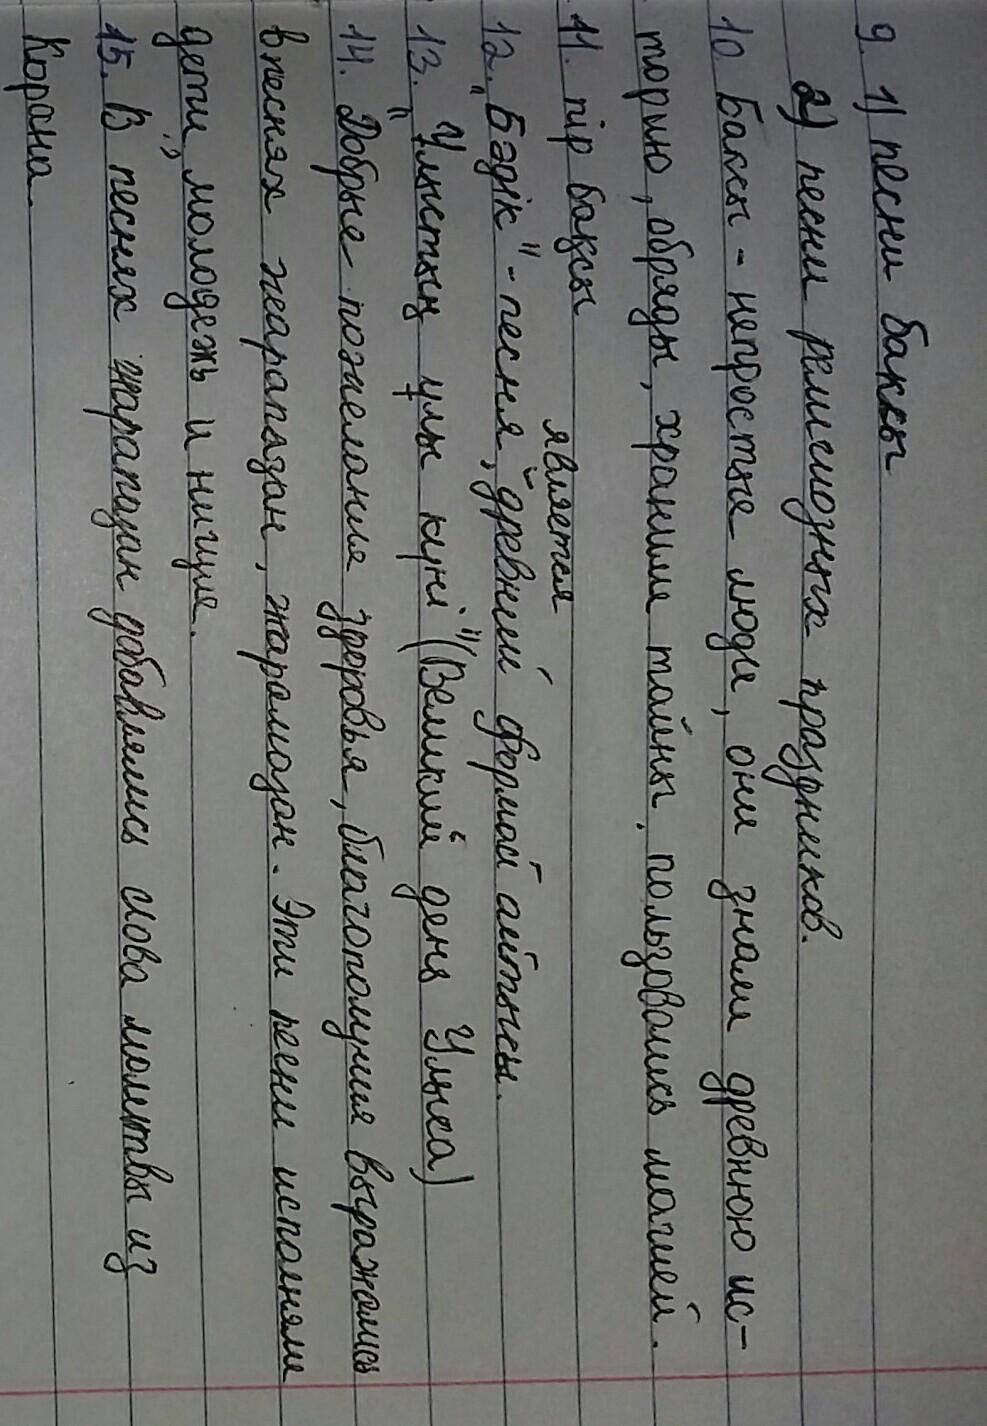 9. 1) песни баксы
2) песни религиозных праздников.
10. Баксы - непростые люди, они знали древнюю ис-
торию, обряды, хранили тайны, пользовались магией.
11. пір бақсы
является
12. "Бәдік" - песня, древней формой айтысы.
13. "Ұлыстың ұлы күні" (Великий день Улыса)
14. Добрые пожелания здоровья, благополучия выражались
в песнях жарапазан, жарамазан. Эти песни исполняли
дети, молодежь и нищие.
15. В песнях жарапазан добавлялись слова молитвы из
Корана.